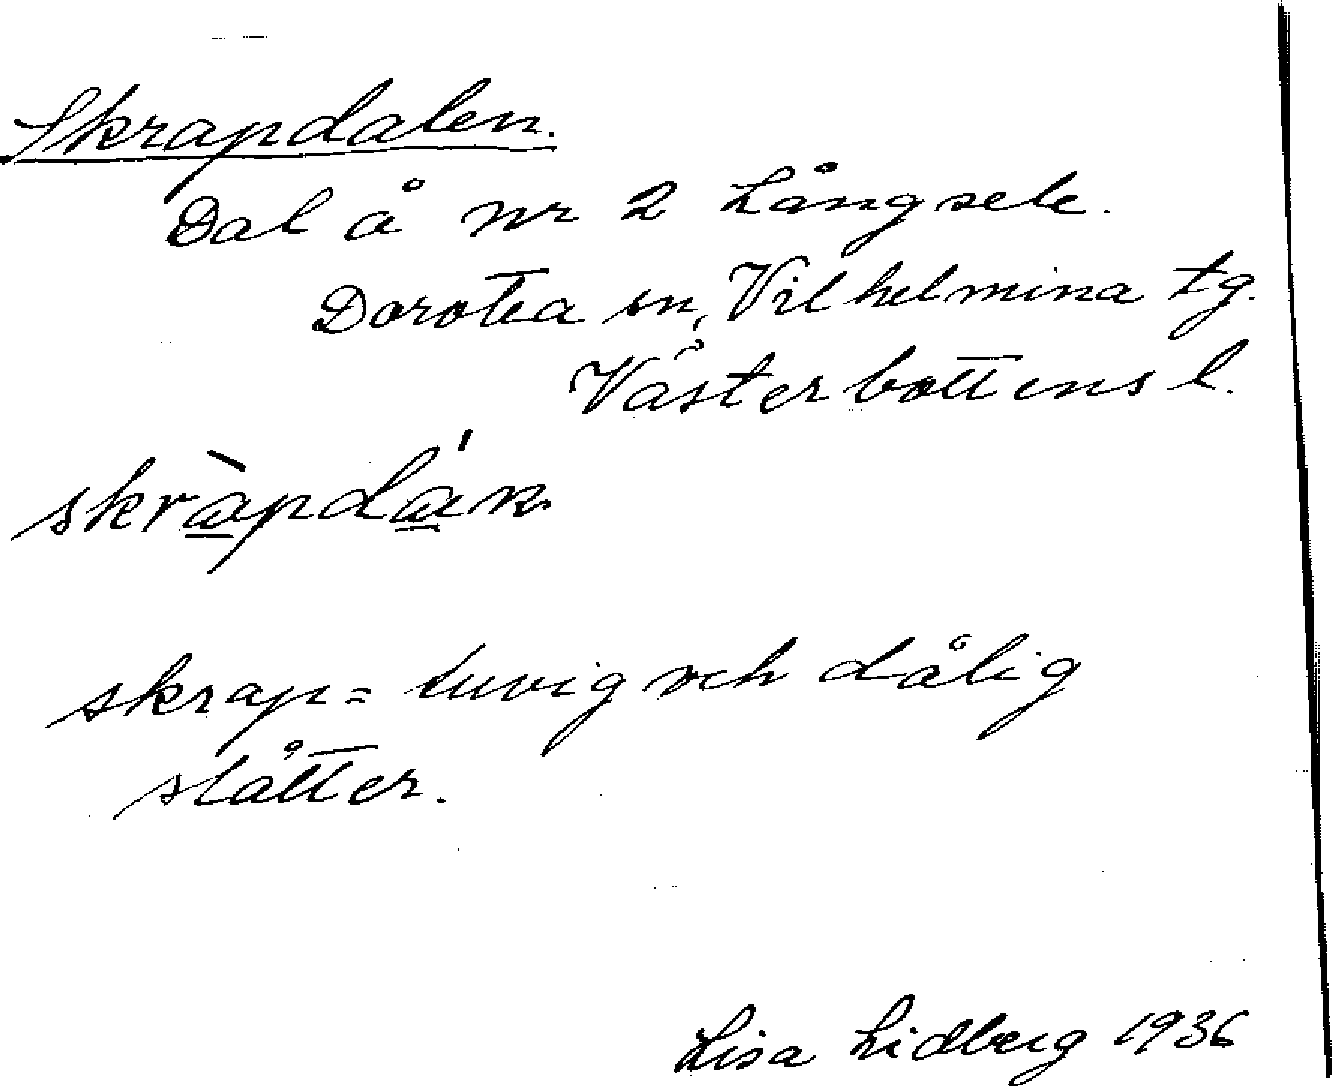 Skrapdalen.
Dal å nr 2 Långsele.
Dorotea sn, Vilhelmina tg.
Västerbottens l.
skrap = tuvig och dålig
slåtter.
Lisa Lidberg 1936